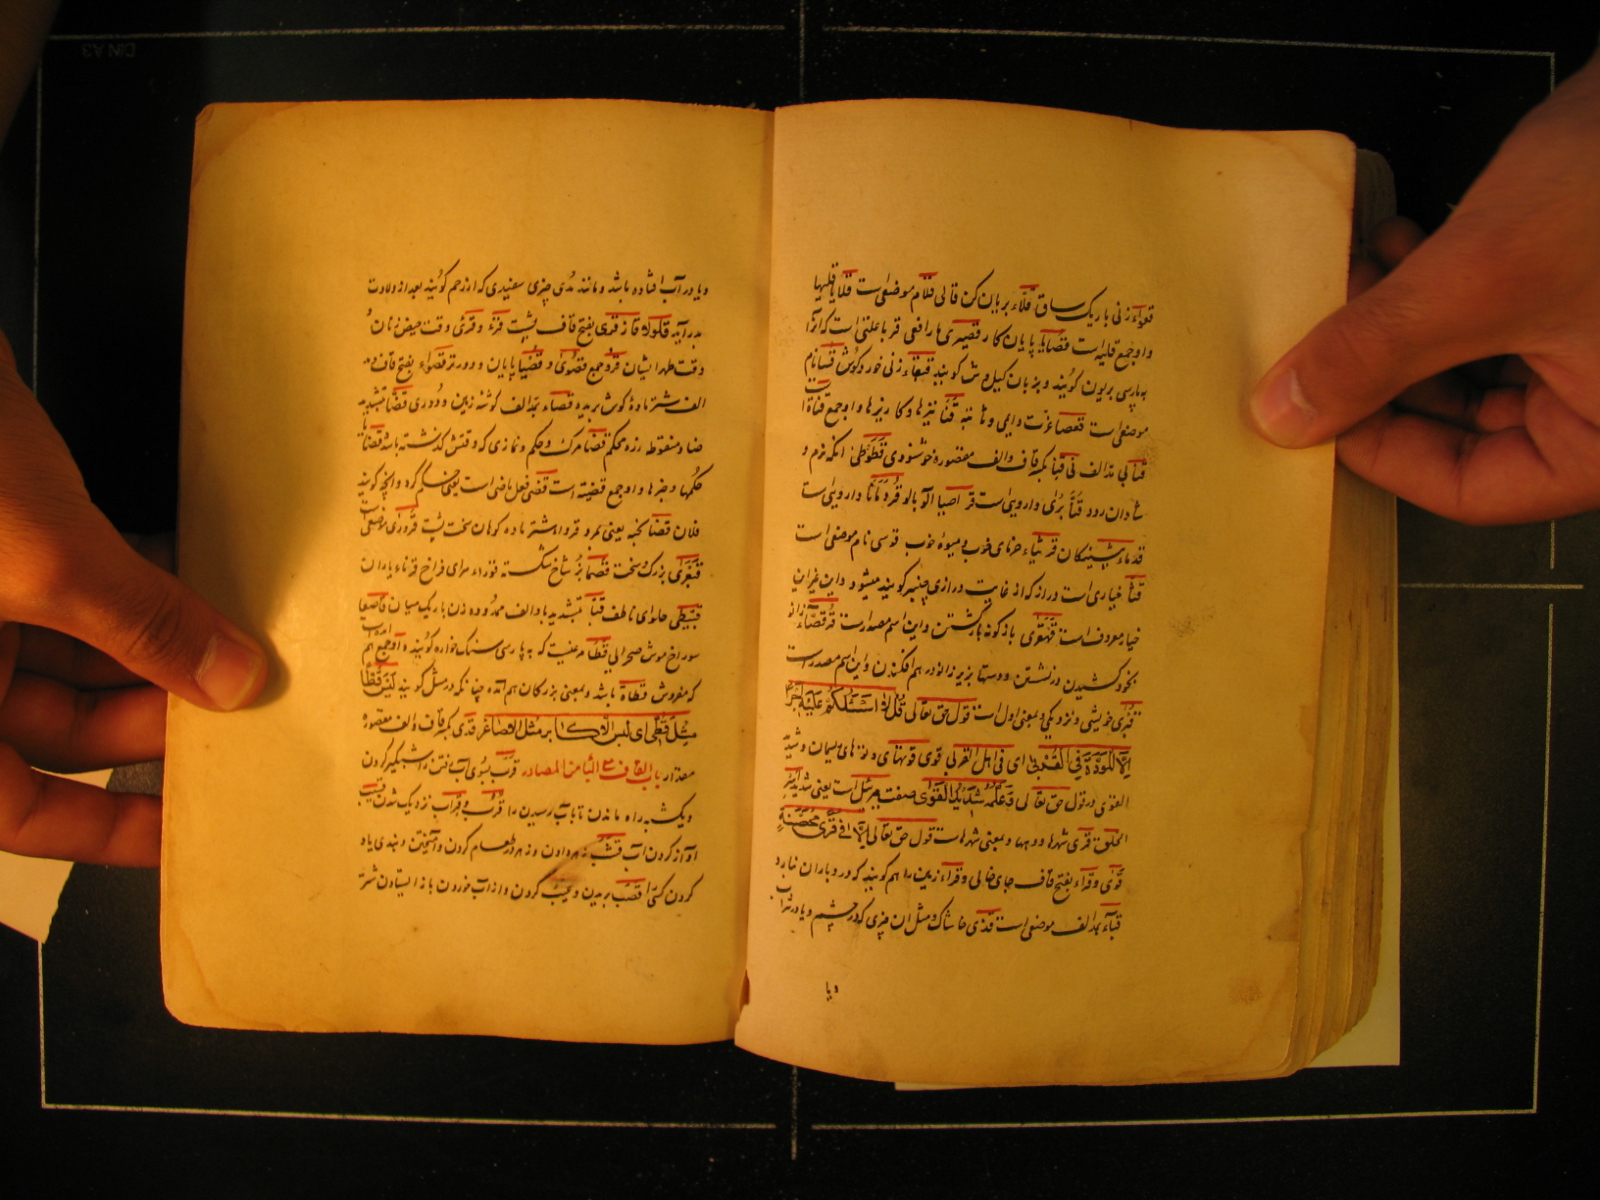 قعواء زنی باریک ساق قلاء بریان کن قالی قلام موضعی است قلایا قلیها
و او جمع قلیه است قصایا پایان کار قصیری
به پارسی بریون گویند و بزبان کیل وش گویند قنفاء زنی خورد گوش قسانام
موضعی است قعصاء عزت دایمی و ثابته قنا نیزها و کاریزها و او جمع قناة
قبا بی مد الف نی قبا بکسر قاف و الف مقصوره خوشنودی قطوطی انکه نرم و
دارویی است قراصیا آلو بالو قردمانا دارویی است
قدماء پیشینکان قریثاء خرمای خوب و میوه خوب قوسی نام موضعی است
قثا خیاری است دراز که از غایت درازی چنبر گویند میشود و این غیر این
خیار معروف است قهقری باز گونه بازگشتن و این اسم مصدر است قرفصاء
بخود کشیدن در نشستن و دستها بزیر زانو درهم افکندن و این اسم مصدر است
قربی خویشی و نزدیکی و بمعنی اول است قول حق تعالی قل لا اسئلکم علیه اجرا
الا المودة فی القربی ای فی اهل القربی قوی قوتها و لونهای ریسمان و شدید
القوی در قول حق تعالی و علمه شدید القوی صفت جبرئیل است یعنی شدید
الخلق قری شهرها و دهها و بمعنی شهرهاست قول حق تعالی الا فی قری محصنة
قوی و قواء بفتح قاف جای خالی و قواء زمین را هم گویند که درو باران نبارد
قباء بمد الف موضعی است قذی خاشاک و مثل ان چیزی که در چشم و یا در شراب
و یا
و یا در آب افتاده باشد و مانند مدی چیزی سفیدی که از رحم گویند بعد از ولادت
بدر آید قلولا قاز قری بفتح قاف پشت قرء و قری وقت حیض زنان و
وقت طهر ایشان قرو جمع قصوی و قصیا پایان و دورتر قصواء بفتح قاف و مد
الف شتر مادهٔ گوش بریده قصاء بمد الف گوشه زمین و دوری قضا بتشدید
ضاد منقوطه زره محکم قضا مرگ و حکم و نمازی که وقتش گذشته باشد قضایا
حکمها و خبرها و او جمع قضیه است قضی فعل ماضی است یعنی حکم کرد و آنچه گویند
فلان قضا نحبه یعنی بمرد قرواء اشتر ماده کوهان سخت پشت قروری موضعی است
قبعثری بزرگ و سخت قصما بز شاخ شکسته قوراء سرای فراخ قرناء یاران
قبیطی حلوای ناطف قبا بتشدید با و الف ممدوده زن باریک میان قاصعا
سوراخ موش صحرایی قطا مرغیست که به پارسی سنگ خواره گویند و او جمع است
که مفروش قطاة باشد و بمعنی بزرگان هم آمده چنانکه در مثل گویند لیس قطا
مثل قطی ای لیس الاکابر مثل الاصاغر قدی بکسر قاف و الف مقصوره
مقدار باب القاف مع البا من المصادر قرب بسوی آب رفتن
و یک شبه راه ماندن تا بآب رسیدن را قرب و قراب نزدیک شدن قبیب
آواز کردن آب قشب زهر دادن و زهر در طعام کردن و آمیختن و بدی یاد
کردن کسی را قضب بریدن و عیب کردن و از آب خوردن باز ایستادن شتر